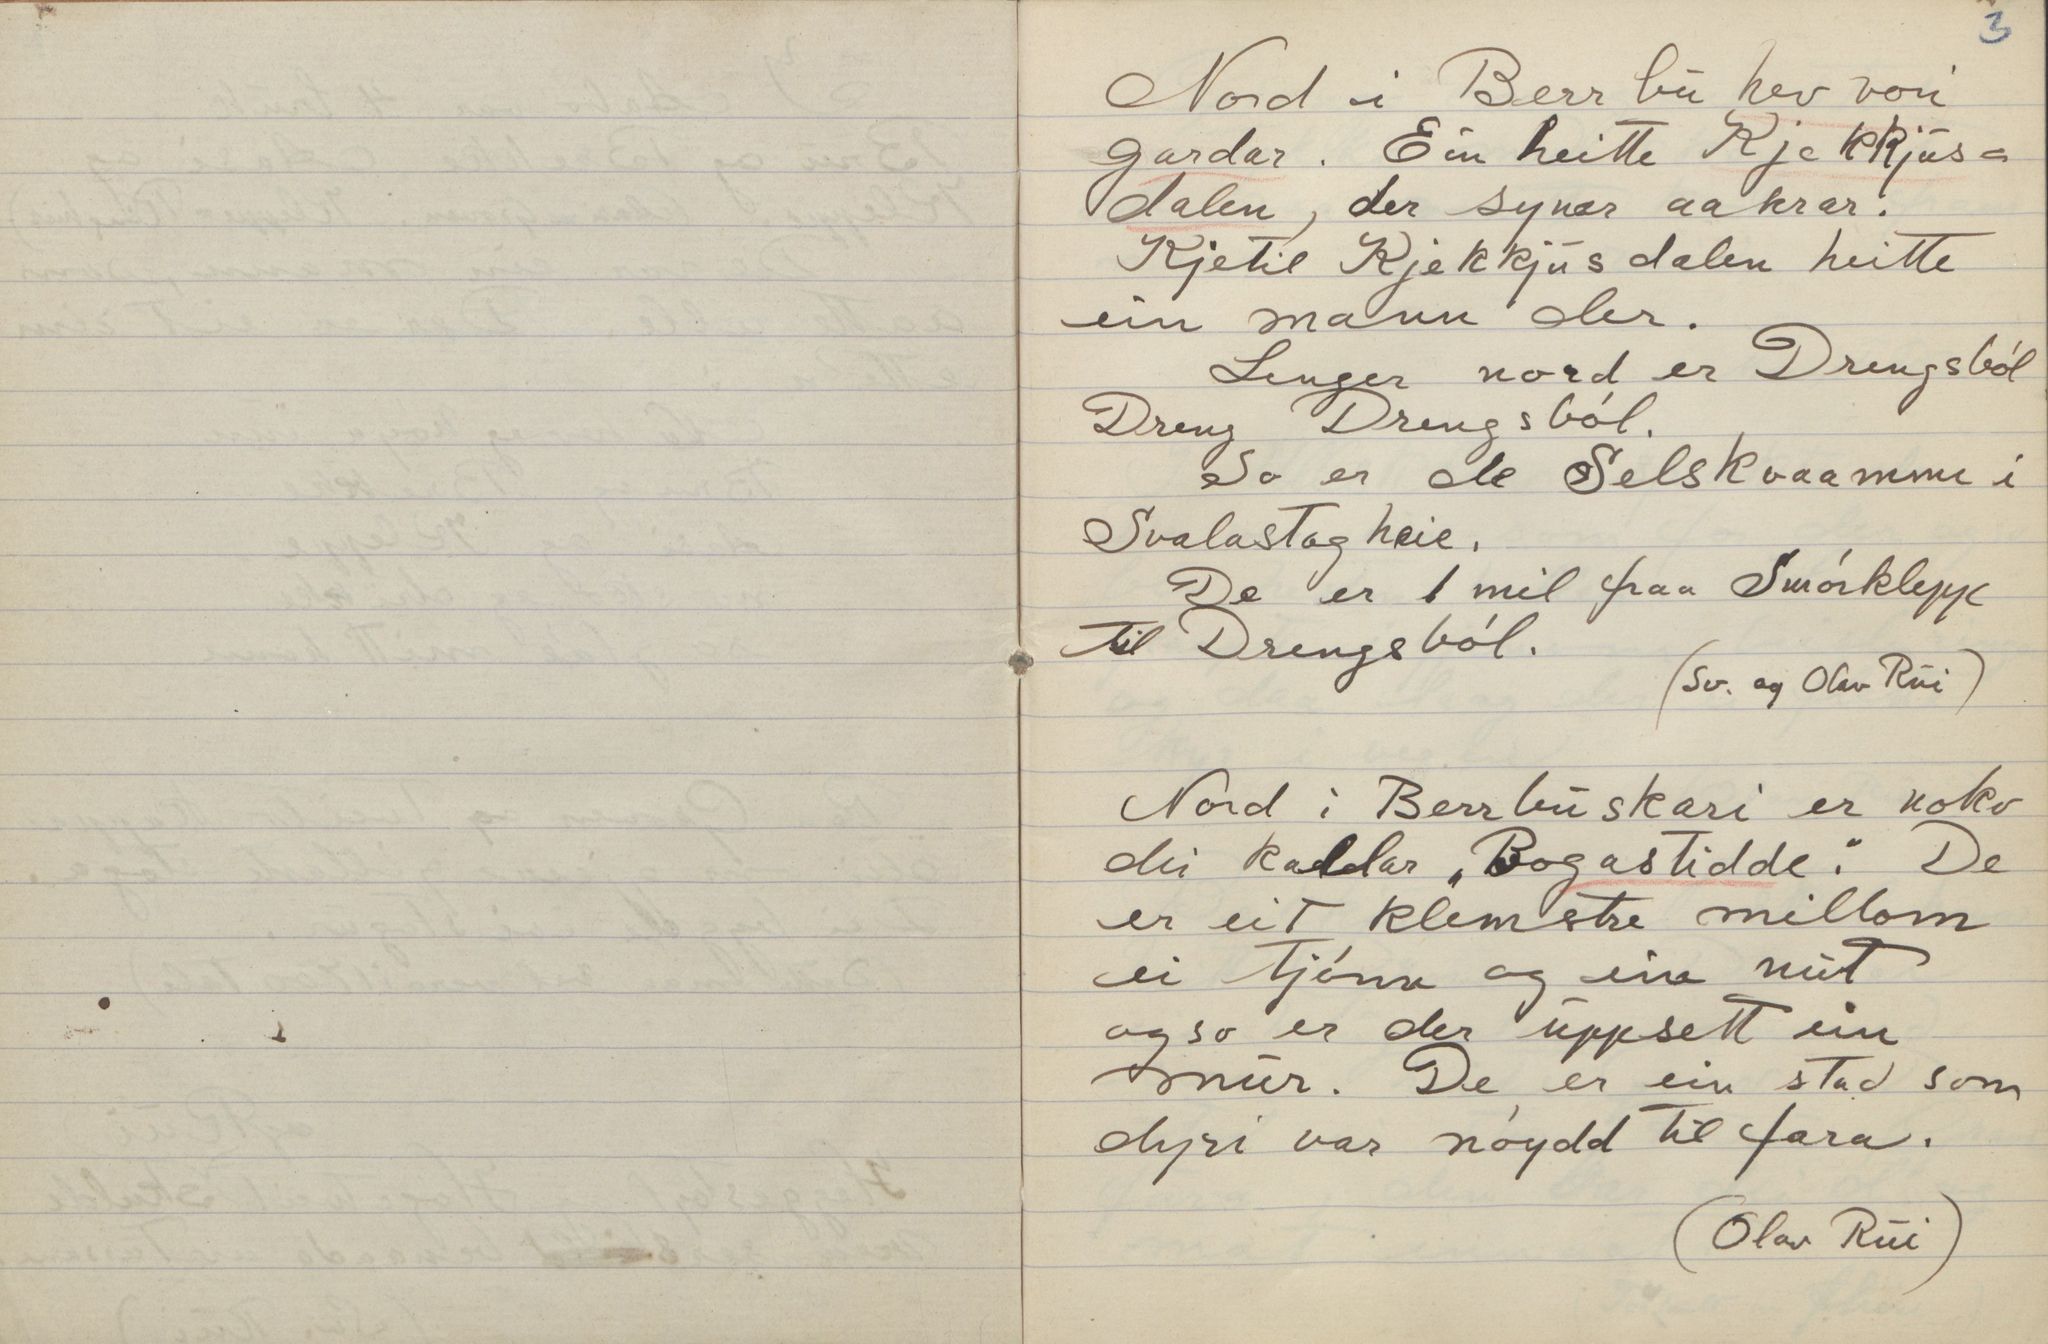 3
Nord i Berrbū hev vori
gardar. Ein heitte Kjekkjūs=
dalen, der syner aakrar.
Kjetil Kjekkjūsdalen heitte
ein mann der.
Lenger nord er Drengsból
Dreng Drengsból.
So er de Selskvaamme i
Svalastogheie.
De er 1 mil fraa Smórklepp
til Drengsból.
(Sv. og Olav Rūi)
Nord i Berrbūskari er noko
dei kallar „Bogastidde“. De
er eit klemstre millom
ei tjónn og ein nūt
og so er der ūppsett ein
mūr. De er ein stad som
dyri var nóydd til fara.
(Olav Rūi)